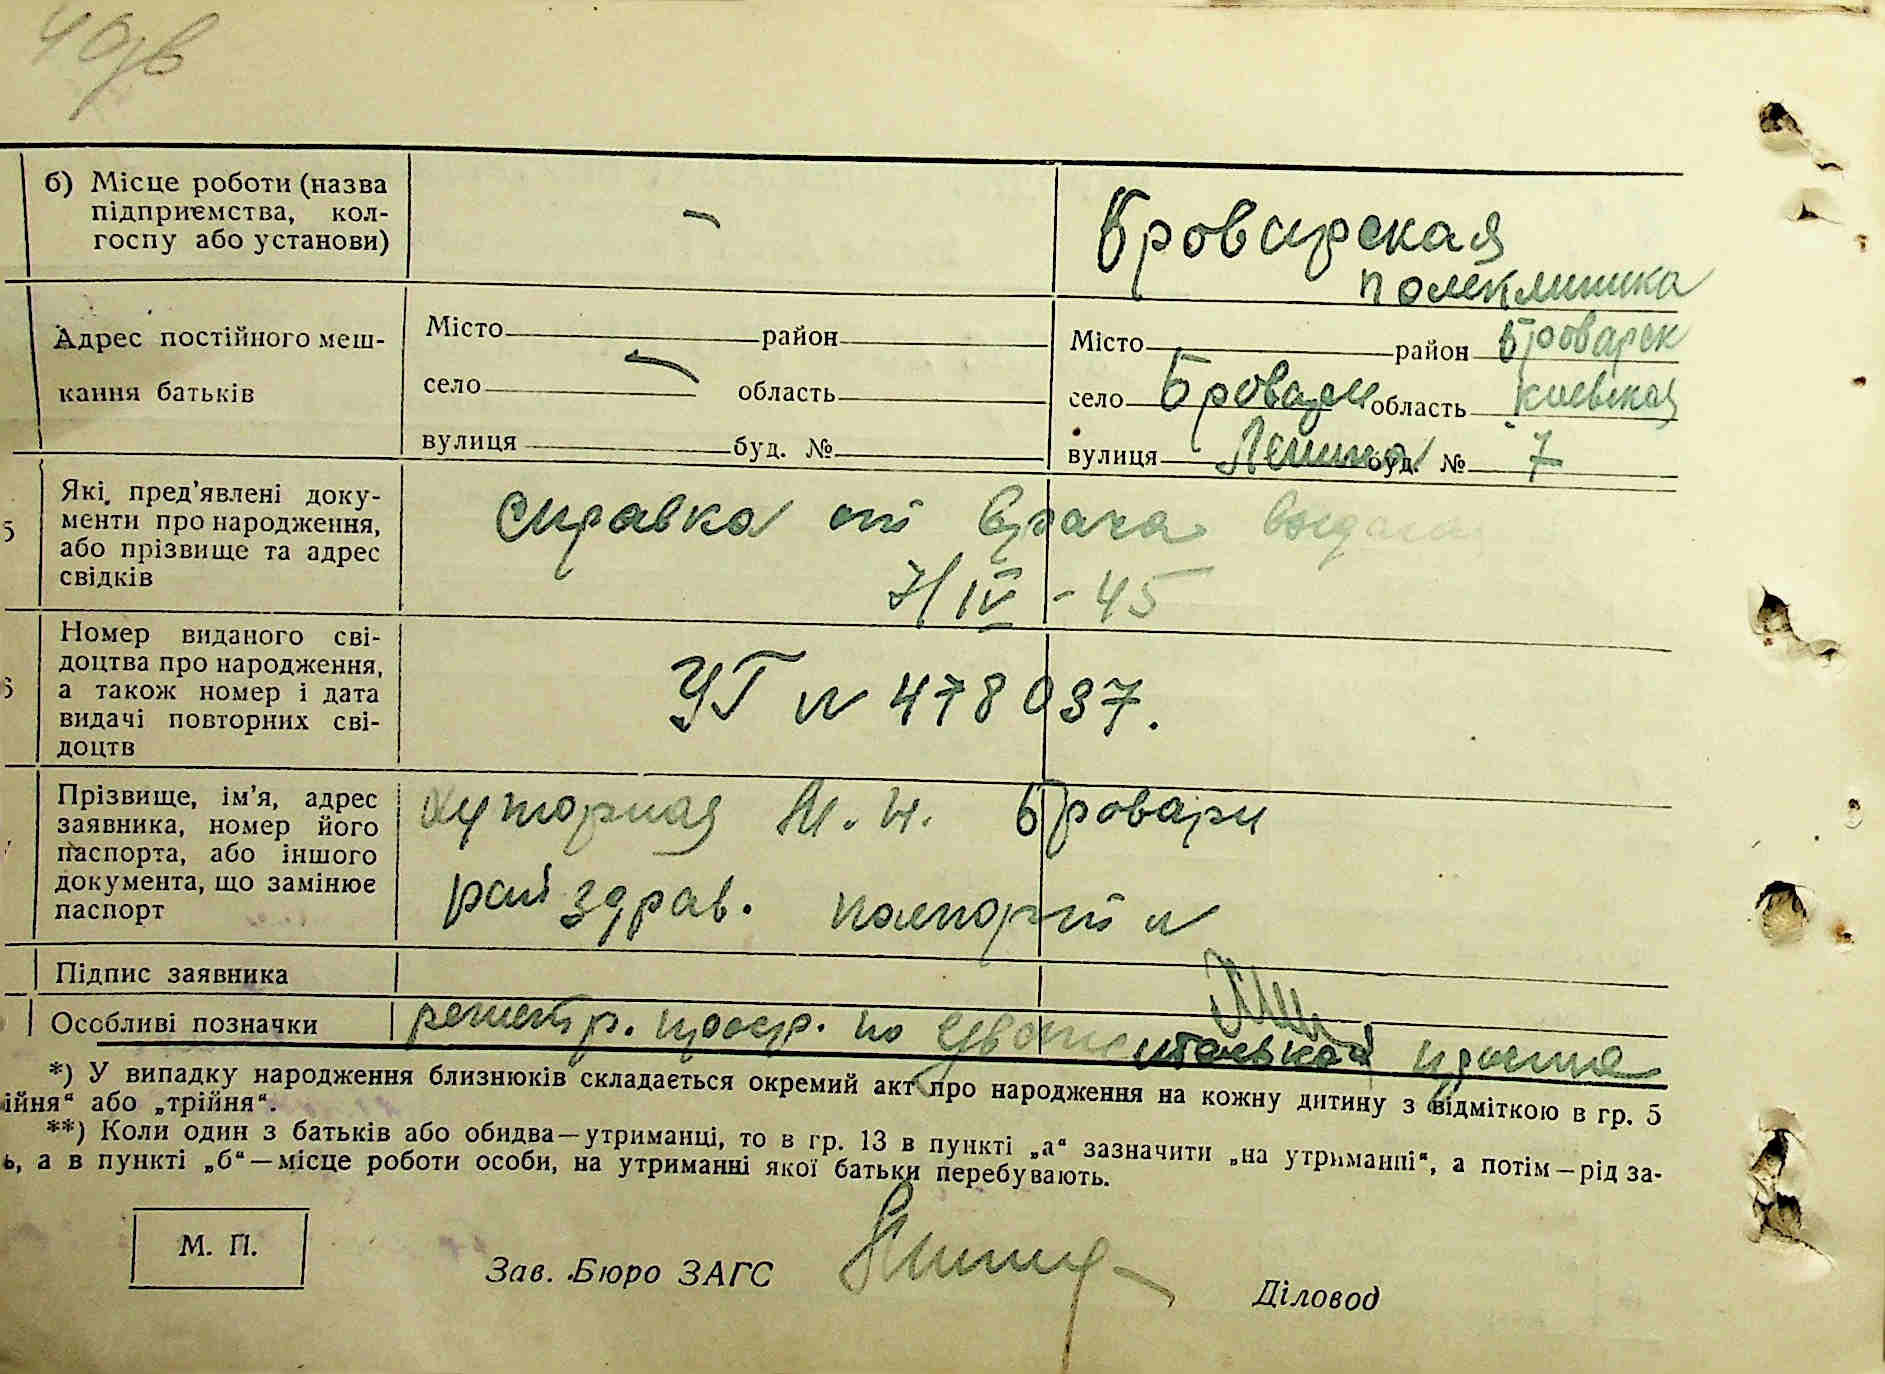 б) Місце роботи (назва
підприємства, кол-
госпу або установи)
Броварская
полеклиника
Адрес постійного меш-
кання батьків
Місто район
село область
вулиця буд. №
Місто район Броварск
село Бровари область Киевская
вулиця Ленина буд. № 7
5
Які пред'явлені доку-
менти про народження,
або прізвище та адрес
свідків
Справка от врача выдана
7/IV - 45
6
Номер виданого сві-
доцтва про народження,
а також номер і дата
видачі повторних сві-
доцтв
УГ № 478037.
Прізвище, ім'я, адрес
заявника, номер його
паспорта, або іншого
документа, що замінює
паспорт
Хуторная М. Н. Бровари
рай здрав. паспорт №
Підпис заявника
Особливі позначки
регистр. по уважительной
*) У випадку народження близнюків складається окремий акт про народження на кожну дитину з відміткою в гр. 5
ійня“ або „трійня“.
**) Коли один з батьків або обидва—утриманці, то в гр. 13 в пункті „а“ зазначити „на утриманні“, а потім—рід за-
ь, а в пункті „б“—місце роботи особи, на утриманні якої батьки перебувають.
М. П.
Зав. Бюро ЗАГС
Діловод